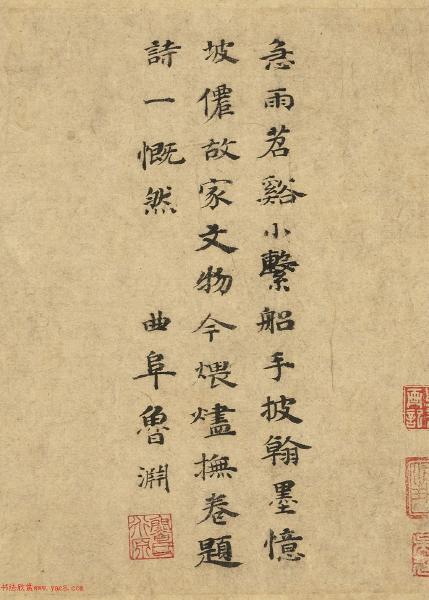 急雨苕谿小繫船手披翰墨憶
坡僊故家文物今煨燼撫卷題
詩一慨然
曲阜魯淵
书法欣赏www.yac8.com